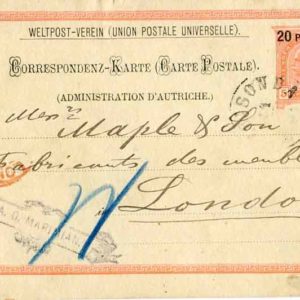 WELTPOST-VEREIN (UNION POSTALE UNIVERSELLE).
20 P
CORRESPONDENZ-KARTE (CARTE POSTALE).
(ADMINISTRATION D'AUTRICHE.)
SOND
Mess rs
Maple & Son
Fabricants des meubl
Londo
A. G. MARI